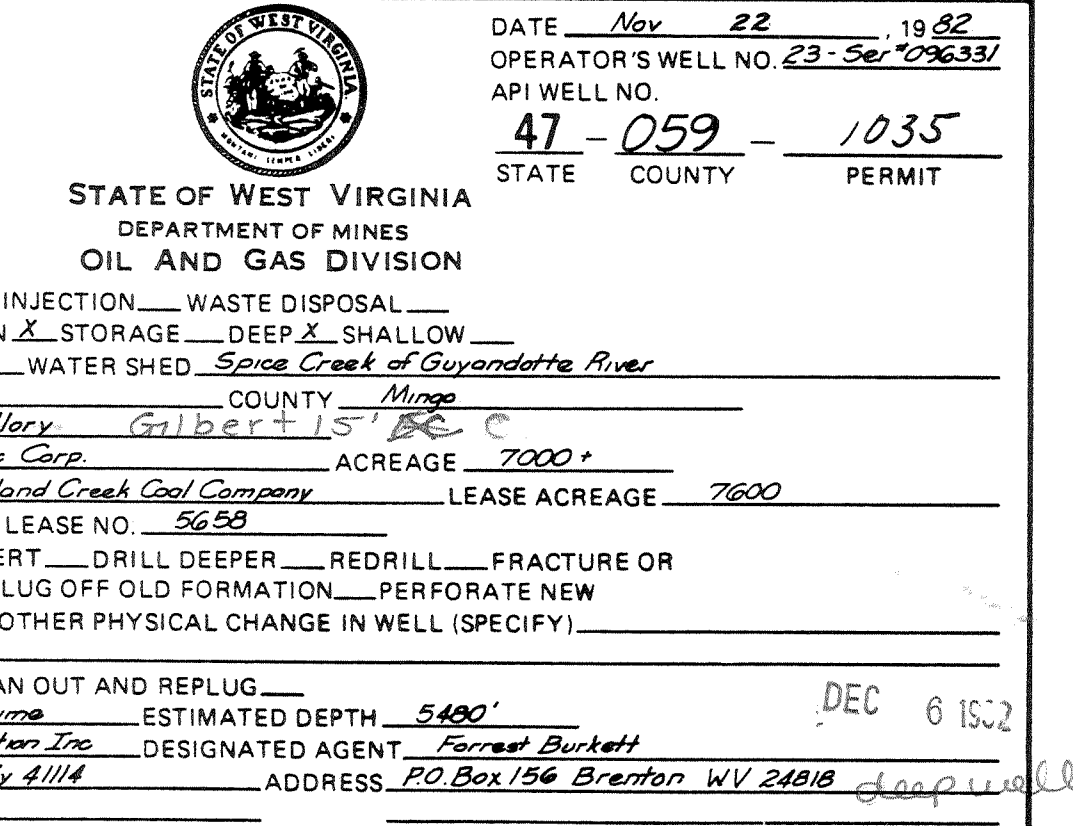 STATE OF WEST VIRGINIA
MONTANI SEMPER LIBERI
DATE Nov 22, 1982
OPERATOR'S WELL NO. 23-Ser#096331
API WELL NO.
47 - 059 - 1035
STATE COUNTY PERMIT
STATE OF WEST VIRGINIA
DEPARTMENT OF MINES
OIL AND GAS DIVISION
INJECTION___ WASTE DISPOSAL___
N X STORAGE___ DEEP X SHALLOW___
WATER SHED Spice Creek of Guyandotte River
COUNTY Mingo
llory Gilbert 15' C
c Corp. ACREAGE 7000+
land Creek Coal Company LEASE ACREAGE 7600
LEASE NO. 5658
ERT___DRILL DEEPER___REDRILL___FRACTURE OR
LUG OFF OLD FORMATION___PERFORATE NEW
OTHER PHYSICAL CHANGE IN WELL (SPECIFY)
AN OUT AND REPLUG___
DEC 6 1982
me ESTIMATED DEPTH 5480'
tion Inc DESIGNATED AGENT Forrest Burkett
y 41114 ADDRESS P.O. Box 156 Brenton WV 24818 deep well